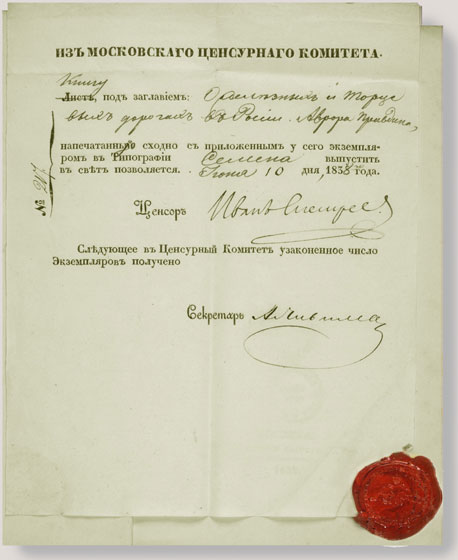 ИЗЪ МОСКОВСКАГО ЦЕНСУРНАГО КОМИТЕТА.
Книгу
Листъ, подъ заглавіемъ: О желѣзныхъ и торце
выхъ дорогахъ въ Росіи. Аврора Правдина,
напечатанную сходно съ приложеннымъ у сего экземпля-
ромъ въ Типографіи Семена выпустить
въ свѣтъ позволяется. Іюня 10 дня, 1838 года.
№ 247
Ценсоръ Иванъ Снегирев.
Слѣдующее въ Ценсурный Комитетъ узаконенное число
Экземпляровъ получено
Секретарь А.